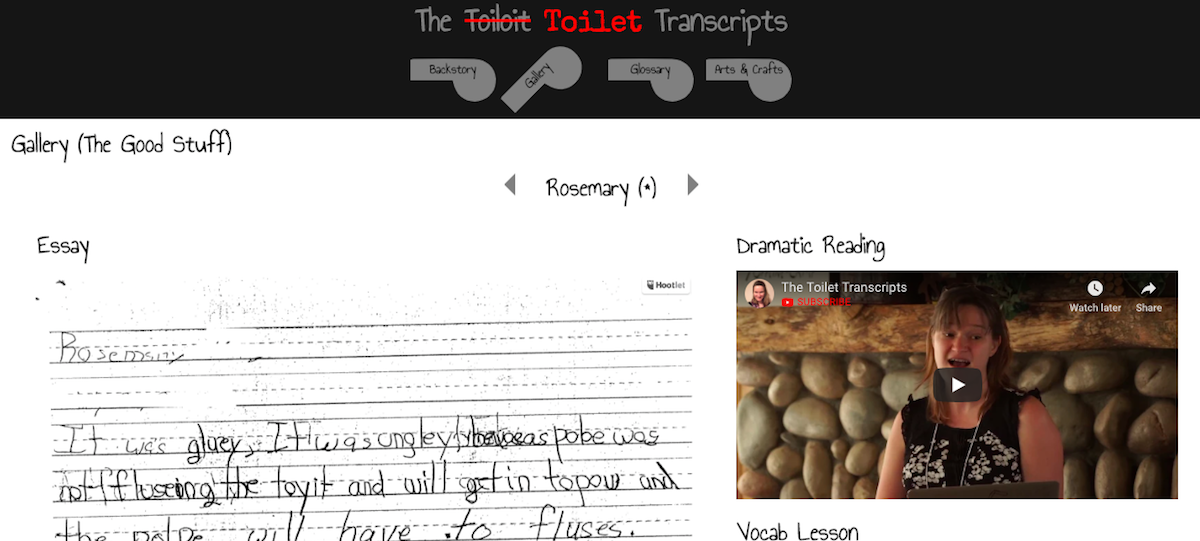 The Toiloit Toilet Transcripts
Backstory
Gallery
Glossary
Arts & Crafts
Gallery (The Good Stuff)
Rosemary (*)
Essay
Hootlet
Rosemary
It was gluey, It was ungley pobe was
not fluseing the toyit and will get in to pow and
the polpe will have to fluses.
Dramatic Reading
The Toilet Transcripts
SUBSCRIBE
Watch later
Share
Vocab Lesson